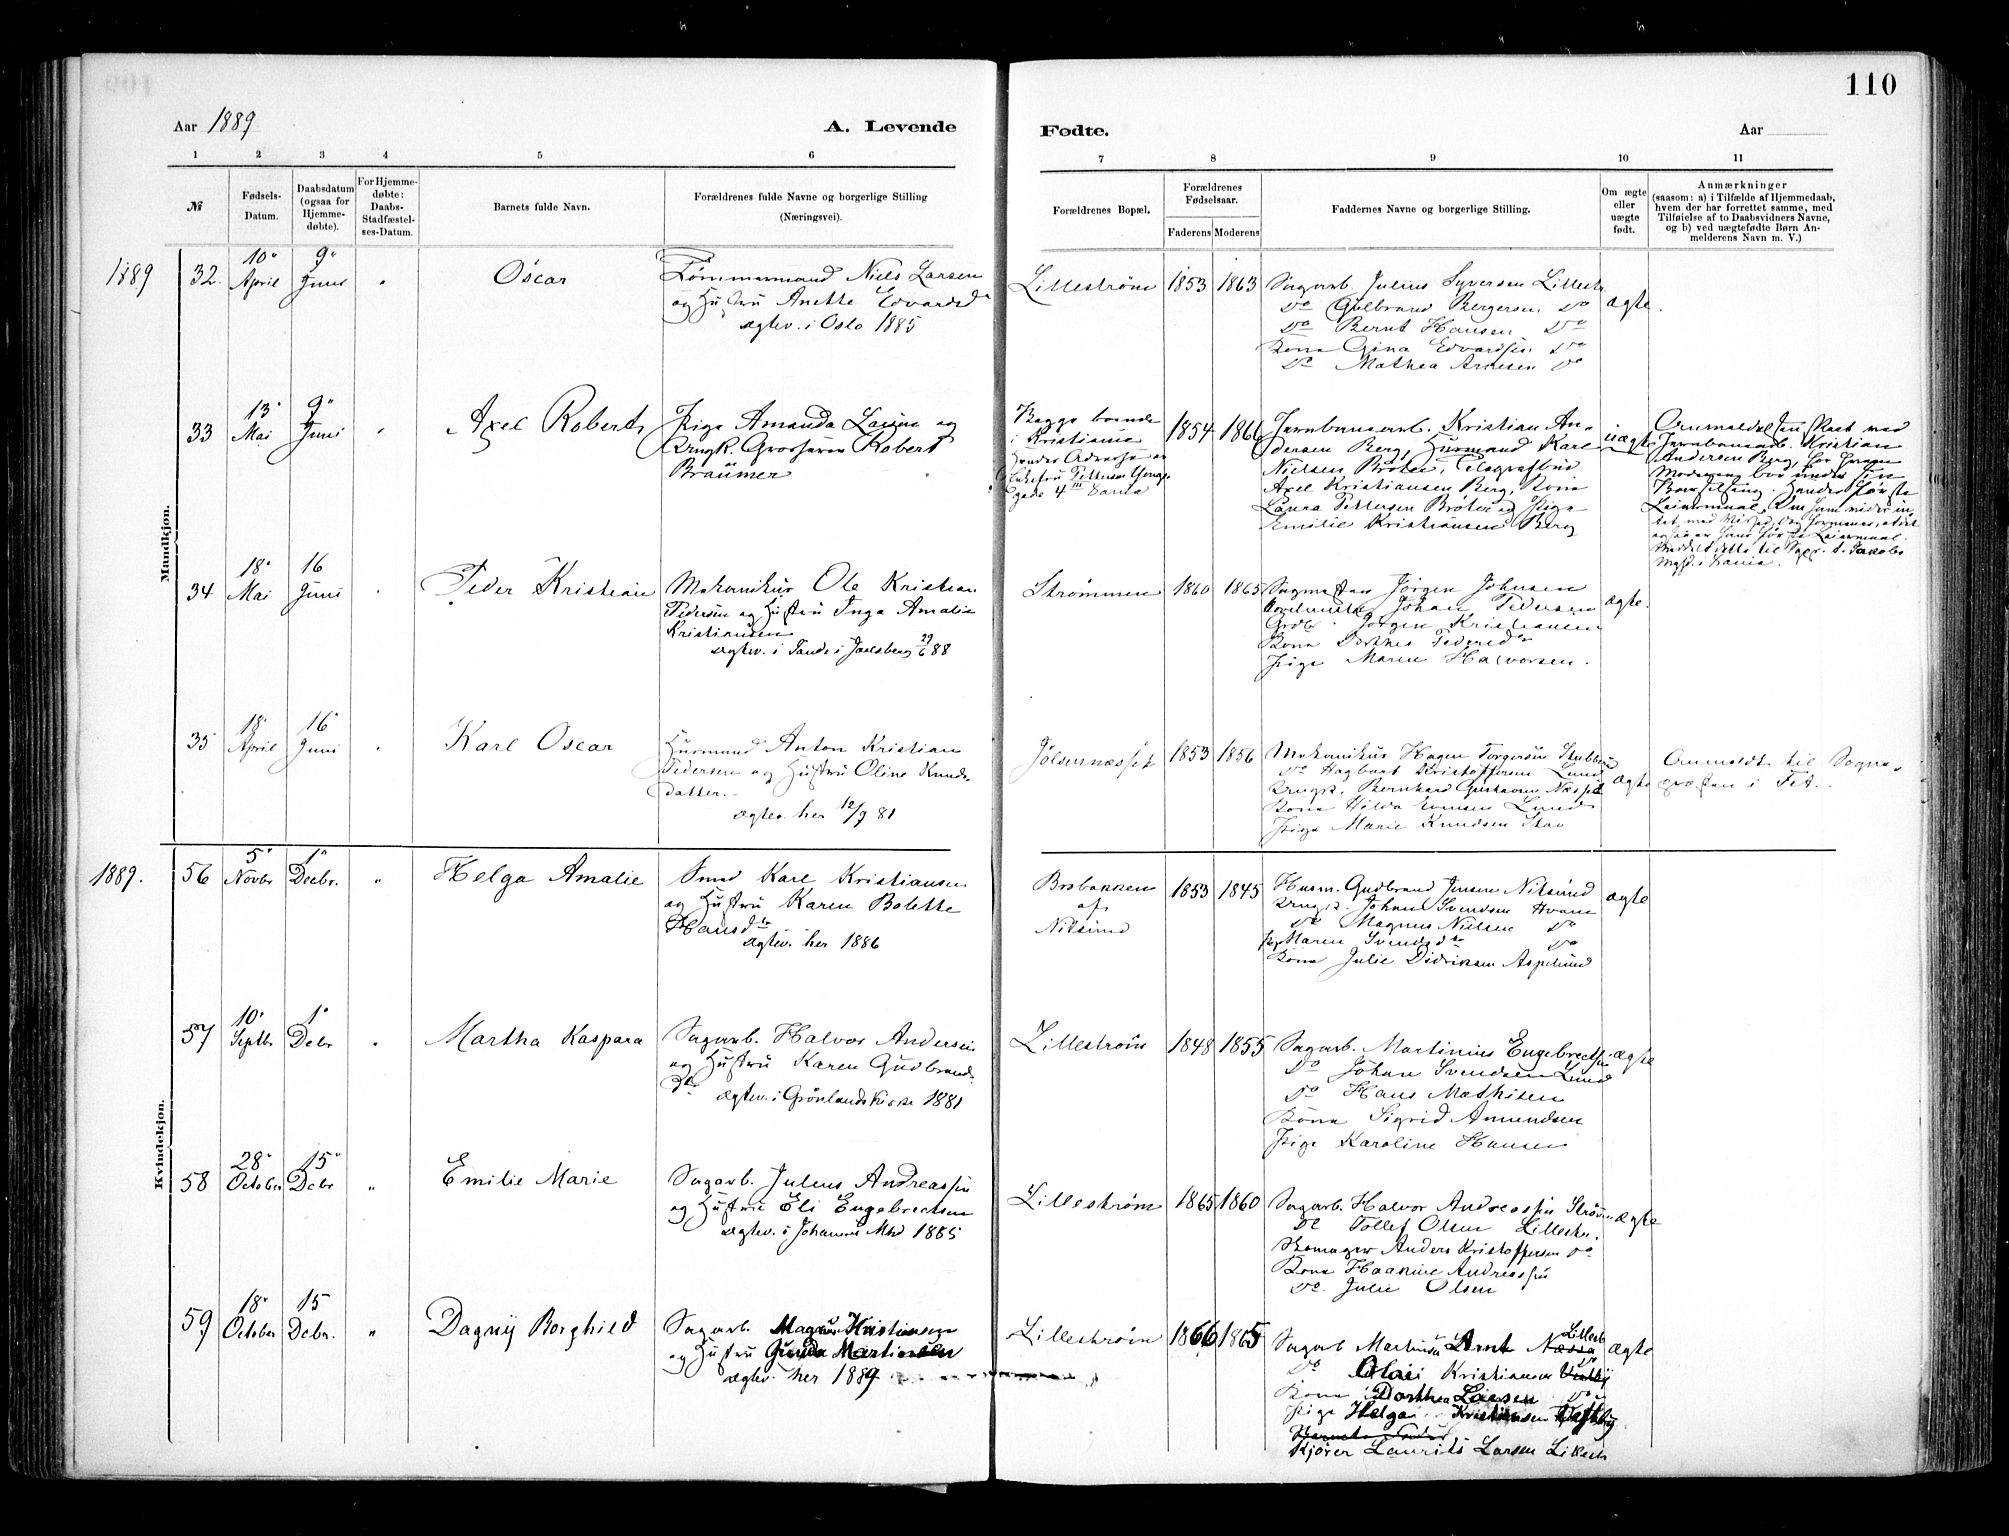 110
Aar 1889
A. Levende
Fødte.
Aar
1 2 3 4 5 6 7 8 9 10 11
№
Fødsels-
Datum.
Daabsdatum
(ogsaa for
Hjemme-
døbte).
For Hjemme-
døbte:
Daabs-
Stadfæstel-
ses-Datum.
Barnets fulde Navn.
Forældrenes fulde Navne og borgerlige Stilling
(Næringsvei).
Forældrenes Bopæl.
Forældrenes
Fødselsaar.
Faderens Moderens
Faddernes Navne og borgerlige Stilling.
Om ægte
eller
uægte
født.
Anmærkninger
(saasom: a) i Tilfælde af Hjemmedaab,
hvem der har forrettet samme, med
Tilføielse af to Daabsvidners Navne,
og b) ved uægtefødte Børn An-
melderens Navn m. V.)
Mandkjøn.
1889
32. 10 April 9 Juni " Oscar
Tømmermand Niels Larsen
og Hustru Anette Edvardsd
ægtev. i Oslo 1885
Lillestrøm 1853 1863
Sagarb. Julius Syversen Lillestr.
Do Gulbrand Bergersen Do
Do Bernt Hansen Do
Kona Gina Edvardsen Do
Do Mathea Arnesen Do
ægte.
33 13 Mai 9 Juni " Axel Robert
Pige Amanda Laurn og
Ungk. Grosserer Robert
Braümer
Begge boende
i Kristiania
1854 1866
Jernbanearb. Kristian An-
dersen Berg, Husmand Karl
Nielsen Brøter, Telegrafbud
Axel Kristiansen Berg, Kona
Laura Pettersen Brøter og Pige
Emilie Kristiansen Berg
uægte
Jernbanearb. Kristian
Andersen Berg, for hvem
Moderen bor under sin
Barselseng. Hendes første
Leiermaal.
34 18 Mai 16 Juni " Peder Kristian
Mekanikus Ole Kristian
Pedersen og Hustru Inga Amalie
Kristiansen
ægtev. i Sande i Jarlsberg 29/6 88
Strømmen 1860 1865
Sagmester Jørgen Johnsen
Johan Pedersen
Grdb. Jørgen Kristiansen
Kona Dorthea Pedersd
Pige Maren Halvorsen.
ægte.
35 18 April 16 Juni " Karl Oscar
Husmand Anton Kristian
Pedersen og Hustru Oline Knuds-
datter.
ægtev. her 12/9 81
1853 1856
Mekanikus Hagen Torgersen Stubberud
Do Hagbart Kristoffersen Lund
Ungk. Bernhard Gustavsen
Kona Hilda Evensen Lund
Pige Marie Knudsen
ægte
Anmeldt til Sogne-
præsten i Fet.
Kvindekjøn.
1889.
56 5 Novbr 1 Decbr. " Helga Amalie
Smed Karl Kristiansen
og Hustru Karen Bolette
Hansdtr
ægtev. her 1886
Brobakken
af
Nitsund
1853 1845
Husm. Gudbrand Jensen Nitsund
Ungk. Johan Svendsen Hvam
Do Magnus Nielsen Do
Pige Maren Svendsdtr Do
Kona Julie Didriksen Aspelund
ægte
57 10 Septbr 1 Debr " Martha Kaspara
Sagarb. Halvor Andersen
og Hustru Karen Gudbrands-
Dtr ægtev. i Grønlands Kirke 1881
Lillestrøm 1848 1855
Sagarb. Martinius Engebretsen
Do Johan Svendsen Lund
Do Hans Mathisen
Kona Sigrid Amundsen
Pige Karoline Hansen
ægte
58 28 October 15 Debr " Emilie Marie
Sagarb. Julius Andreassen
og Hustru Eli Engebrectsen
ægtev. i Johannes Mhd 1885
Lillestrøm 1865 1860
Sagarb. Halvor Andreassen Strøm
Do Tollef Olsen Lillestr.
Skomager Anders Kristoffersen Do
Kona Haakine Andreassen
Do. Julie Olsen
ægte
59 18 October 15 Debr. " Dagny Borghild
Sagarb. Magnus Kristiansen
og Hustru Gunda Martinsen
ægtev. her 1889
Lillestrøm 1866 1865
Sagarb Martinius Arnt Næssa Lillestr
Do Olai Kristiansen Do
Kona Dorthea Larsen Do
Pige Helga Kristiansen
Kjører Laurits Larsen Lillestr
ægte